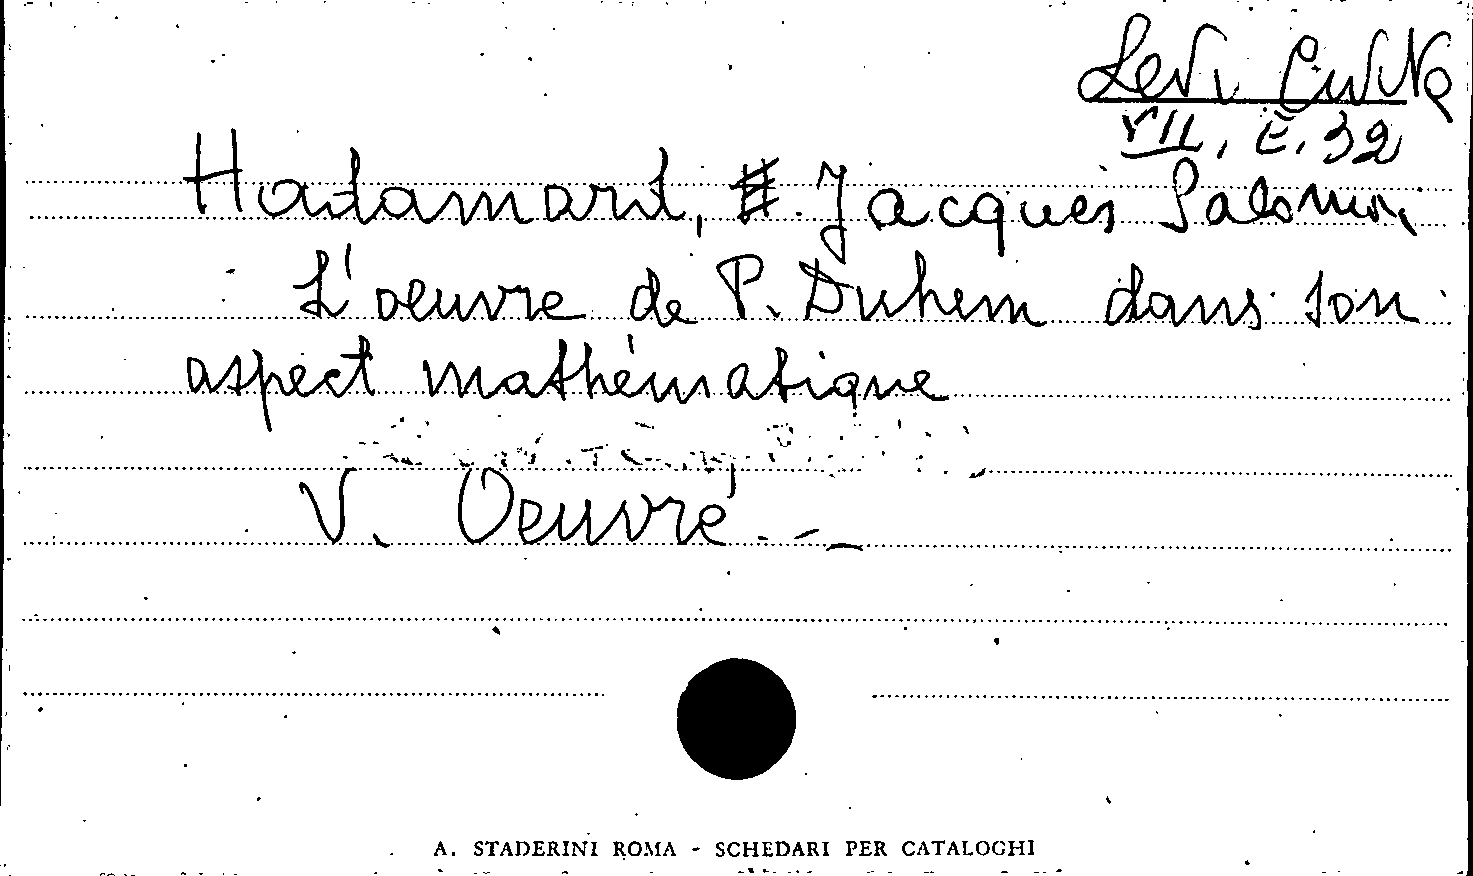 Levi Civita
VII. E. 32
Hadamard, Jacques Salomon
L'oeuvre de P. Duhem dans son
aspect mathématique
V. Oeuvre
A. STADERINI ROMA - SCHEDARI PER CATALOGHI